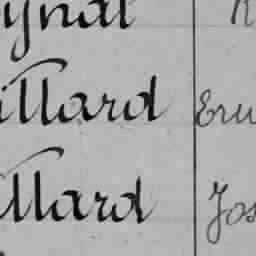 ynal R
illard Eru
llard Jos